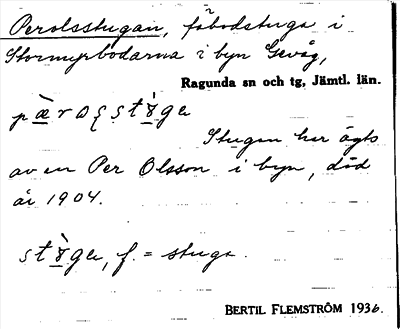 Perolsstugan, fäbodstuga i
Stormyrbodarna i byn Gevåg,
Ragunda sn och tg, Jämtl. län.
Stugan har ägts
av en Per Olsson i byn, död
år 1904.
f. = stuga.
BERTIL FLEMSTRÖM 1936.